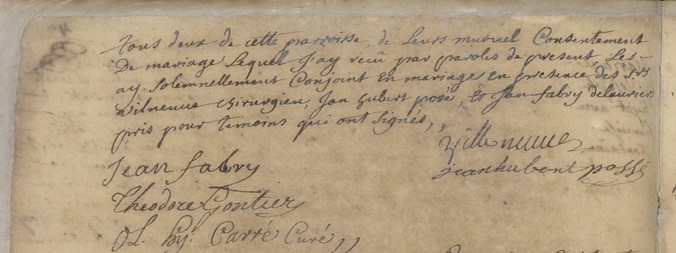 tous deux de cette parroisse, de Leurs mutuel Consentement
De mariage Lequel J'ay reçû par paroles de present Les
ay Solemnellement Conjoint En mariage en presence des Srs
vilneuve chirurgien, Jan hubert posé, Et Jan fabry
pris pour temoins qui ont Signés,
Villeneuve
Jean fabry
jean hubert possé
Theodore Gontier
Carré Curé